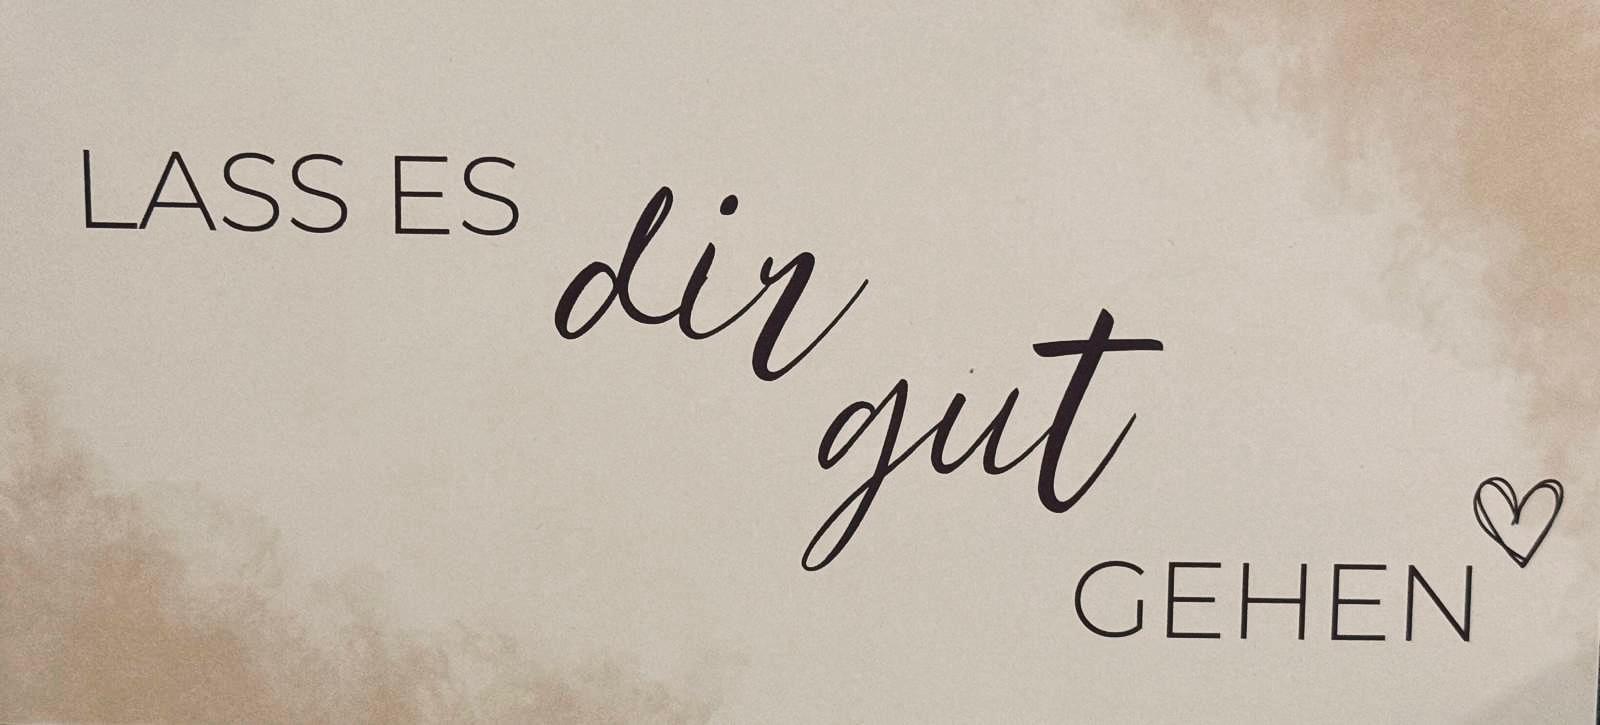 LASS ES
dir
gut
GEHEN